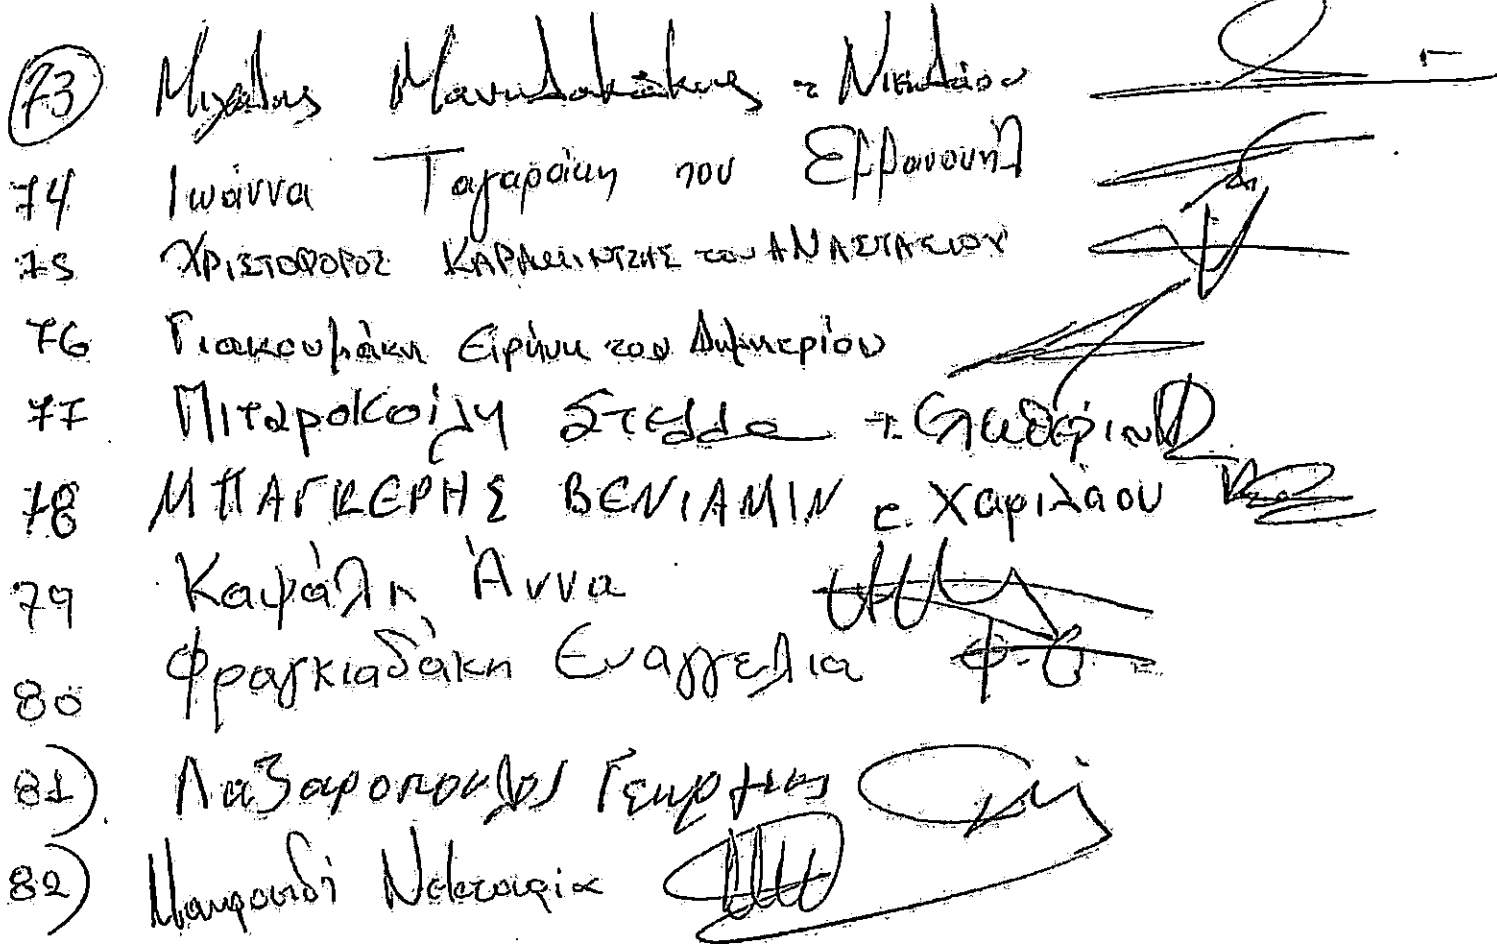 73 Μιχάλης Μανιδακάκης τ. Νικολάου
74 Ιωάννα Ταγαράκη του Εμμανουήλ
75 ΧΡΙΣΤΟΦΟΡΟΣ ΚΑΡΑΜΙΝΤΖΗΣ του ΑΝΑΣΤΑΣΙΟΥ
76 Γιακουμάκη Ειρήνη του Δημητρίου
77 Πιταροκοίλη Στέλλα τ.
78 ΜΠΑΓΚΕΡΗΣ ΒΕΝΙΑΜΙΝ τ. Χαριλάου
79 Καψάλη Άννα
80 Φραγκιαδάκη Ευαγγελία
81) Λαζαροπουλος Γεωργιος
82) Μαυρουδή Νεκταρία